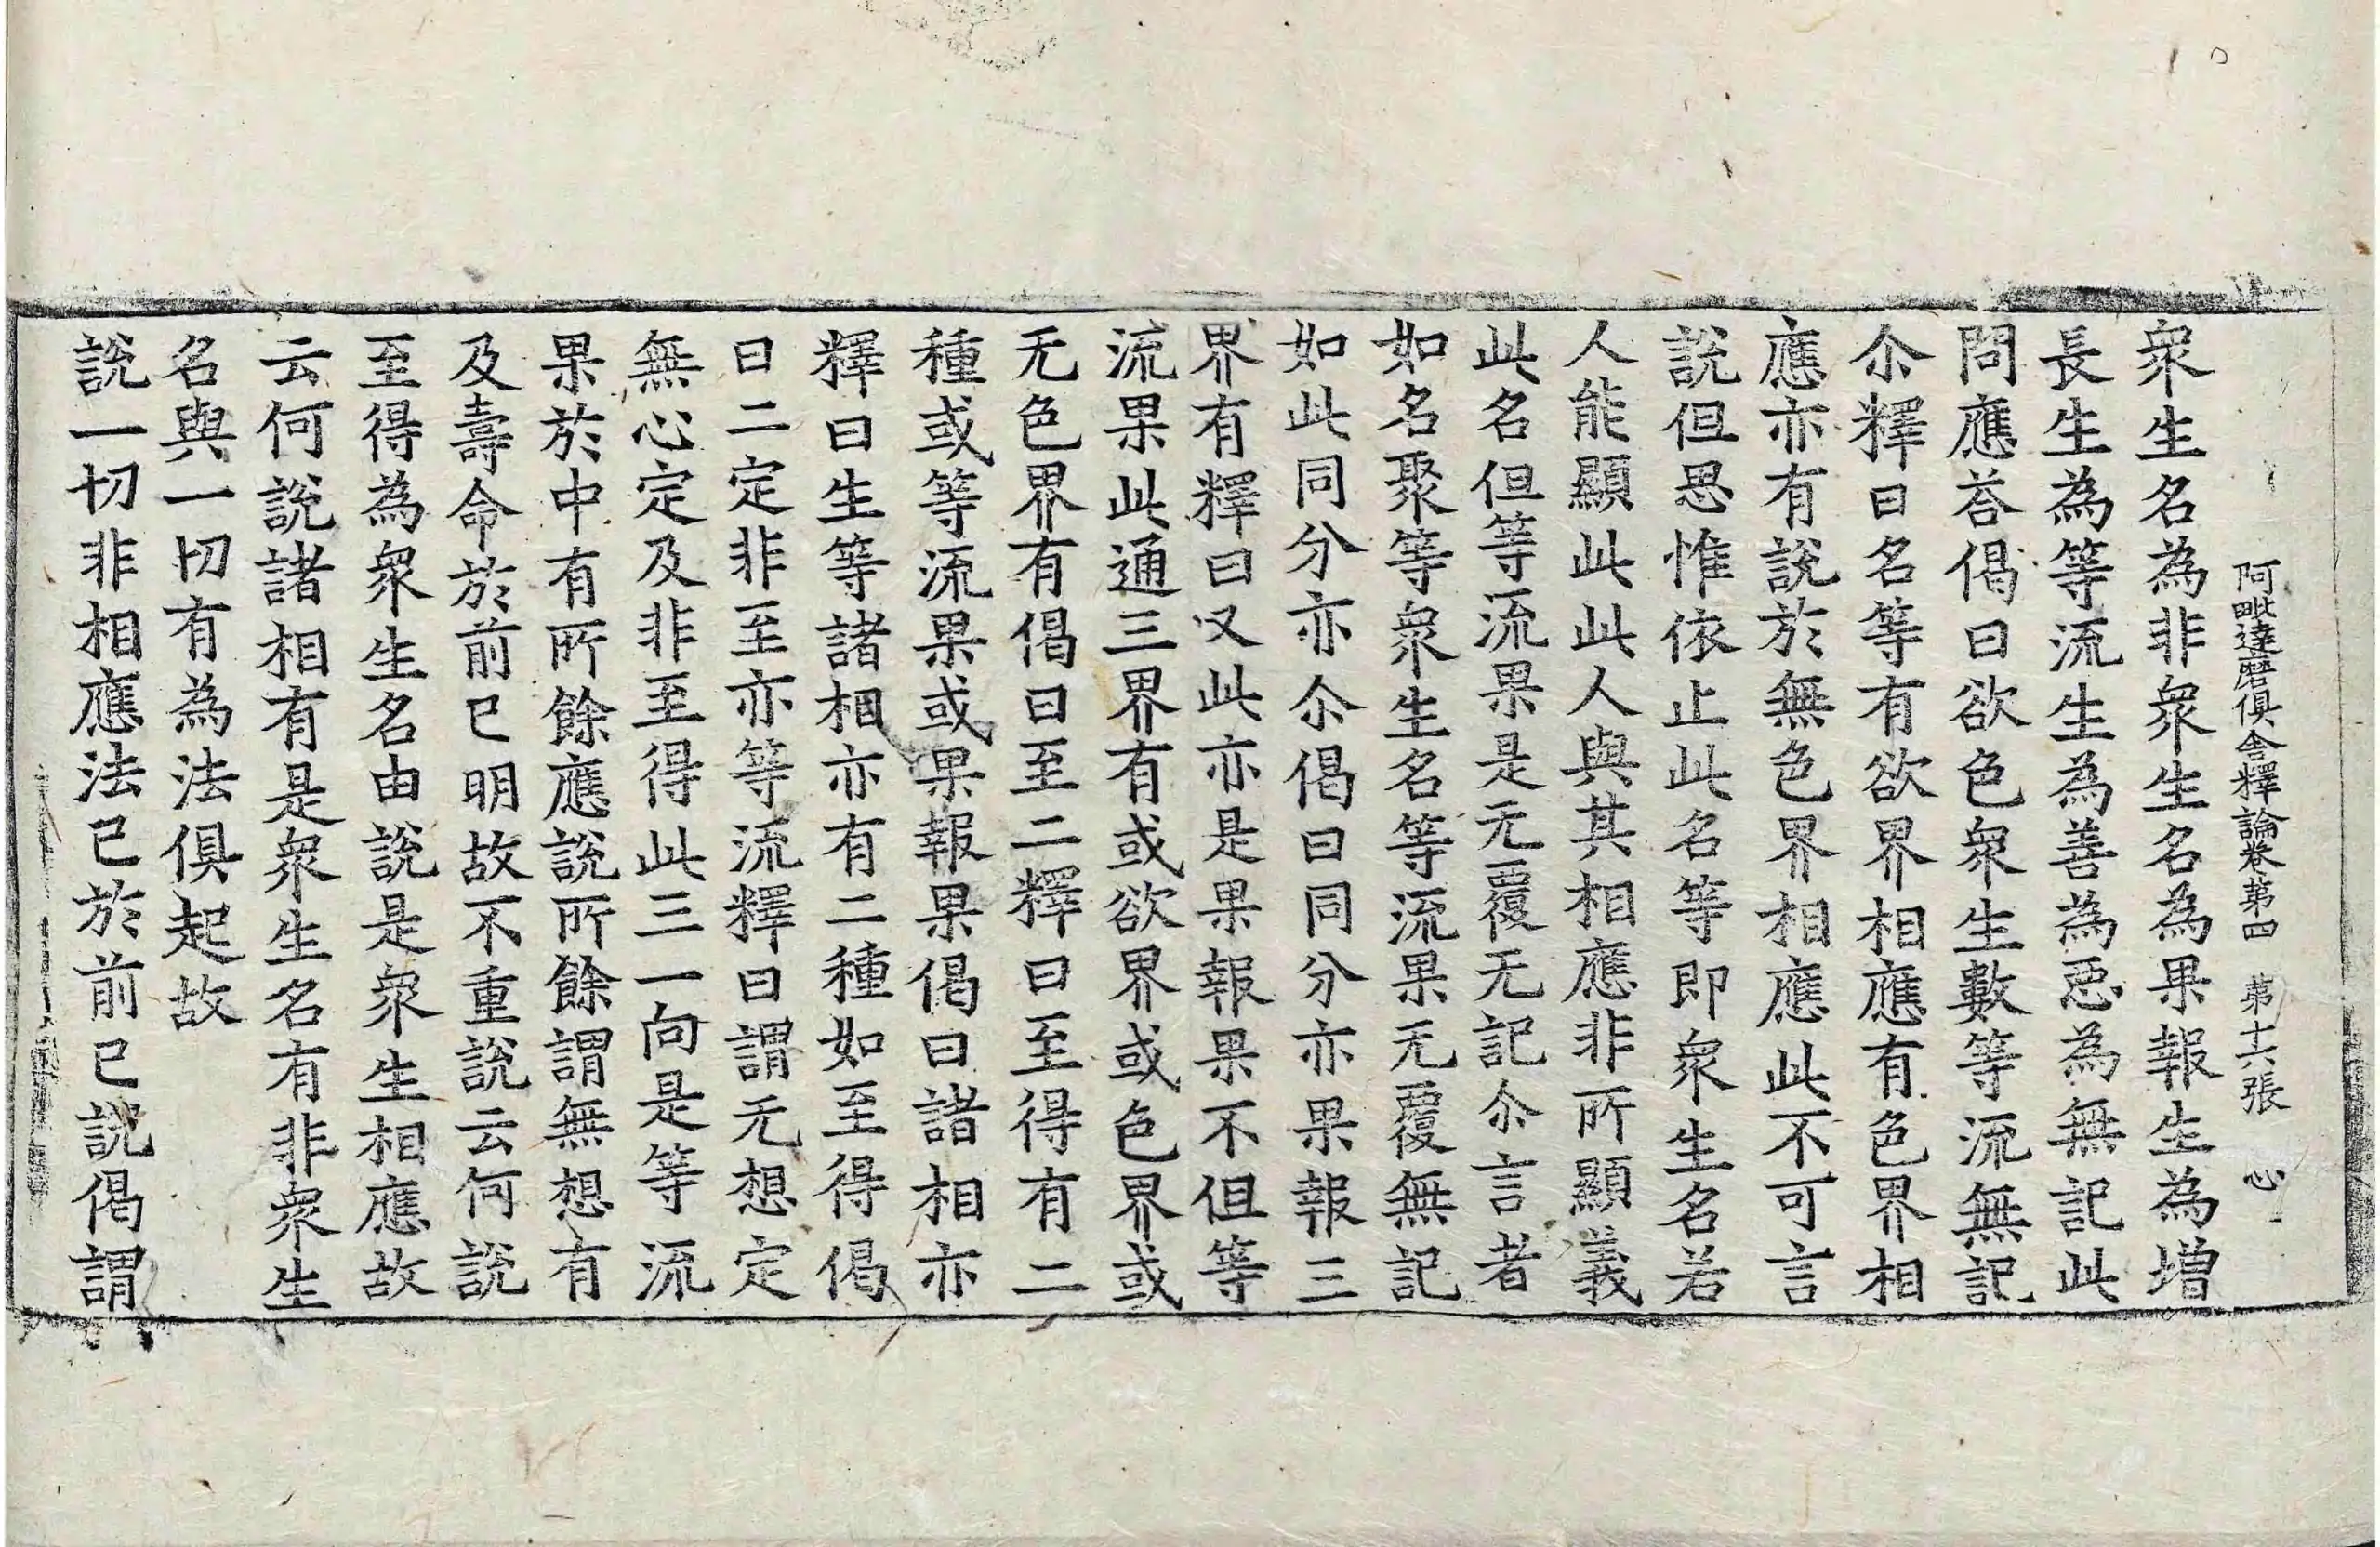 阿毗達磨俱舍釋論卷第四 第十六張 心
衆生名為非衆生名為果報生為增
長生為等流生為善為惡為無記此
問應荅偈曰欲色衆生數等流無記
尒釋曰名等有欲界相應有色界相
應亦有說於無色界相應此不可言
說但思惟依止此名等即衆生名若
人能顯此此人與其相應非所顯義
此名但等流果是无覆无記尒言者
如名聚等衆生名等流果无覆無記
如此同分亦尒偈曰同分亦果報三
界有釋曰又此亦是果報果不但等
流果此通三界有或欲界或色界或
无色界有偈曰至二釋曰至得有二
種或等流果或果報果偈曰諸相亦
釋曰生等諸相亦有二種如至得偈
曰二定非至亦等流釋曰謂无想定
無心定及非至得此三一向是等流
果於中有所餘應說所餘謂無想有
及壽命於前已明故不重說云何說
至得為衆生名由說是衆生相應故
云何說諸相有是衆生名有非衆生
名與一切有為法俱起故
說一切非相應法已於前已說偈謂